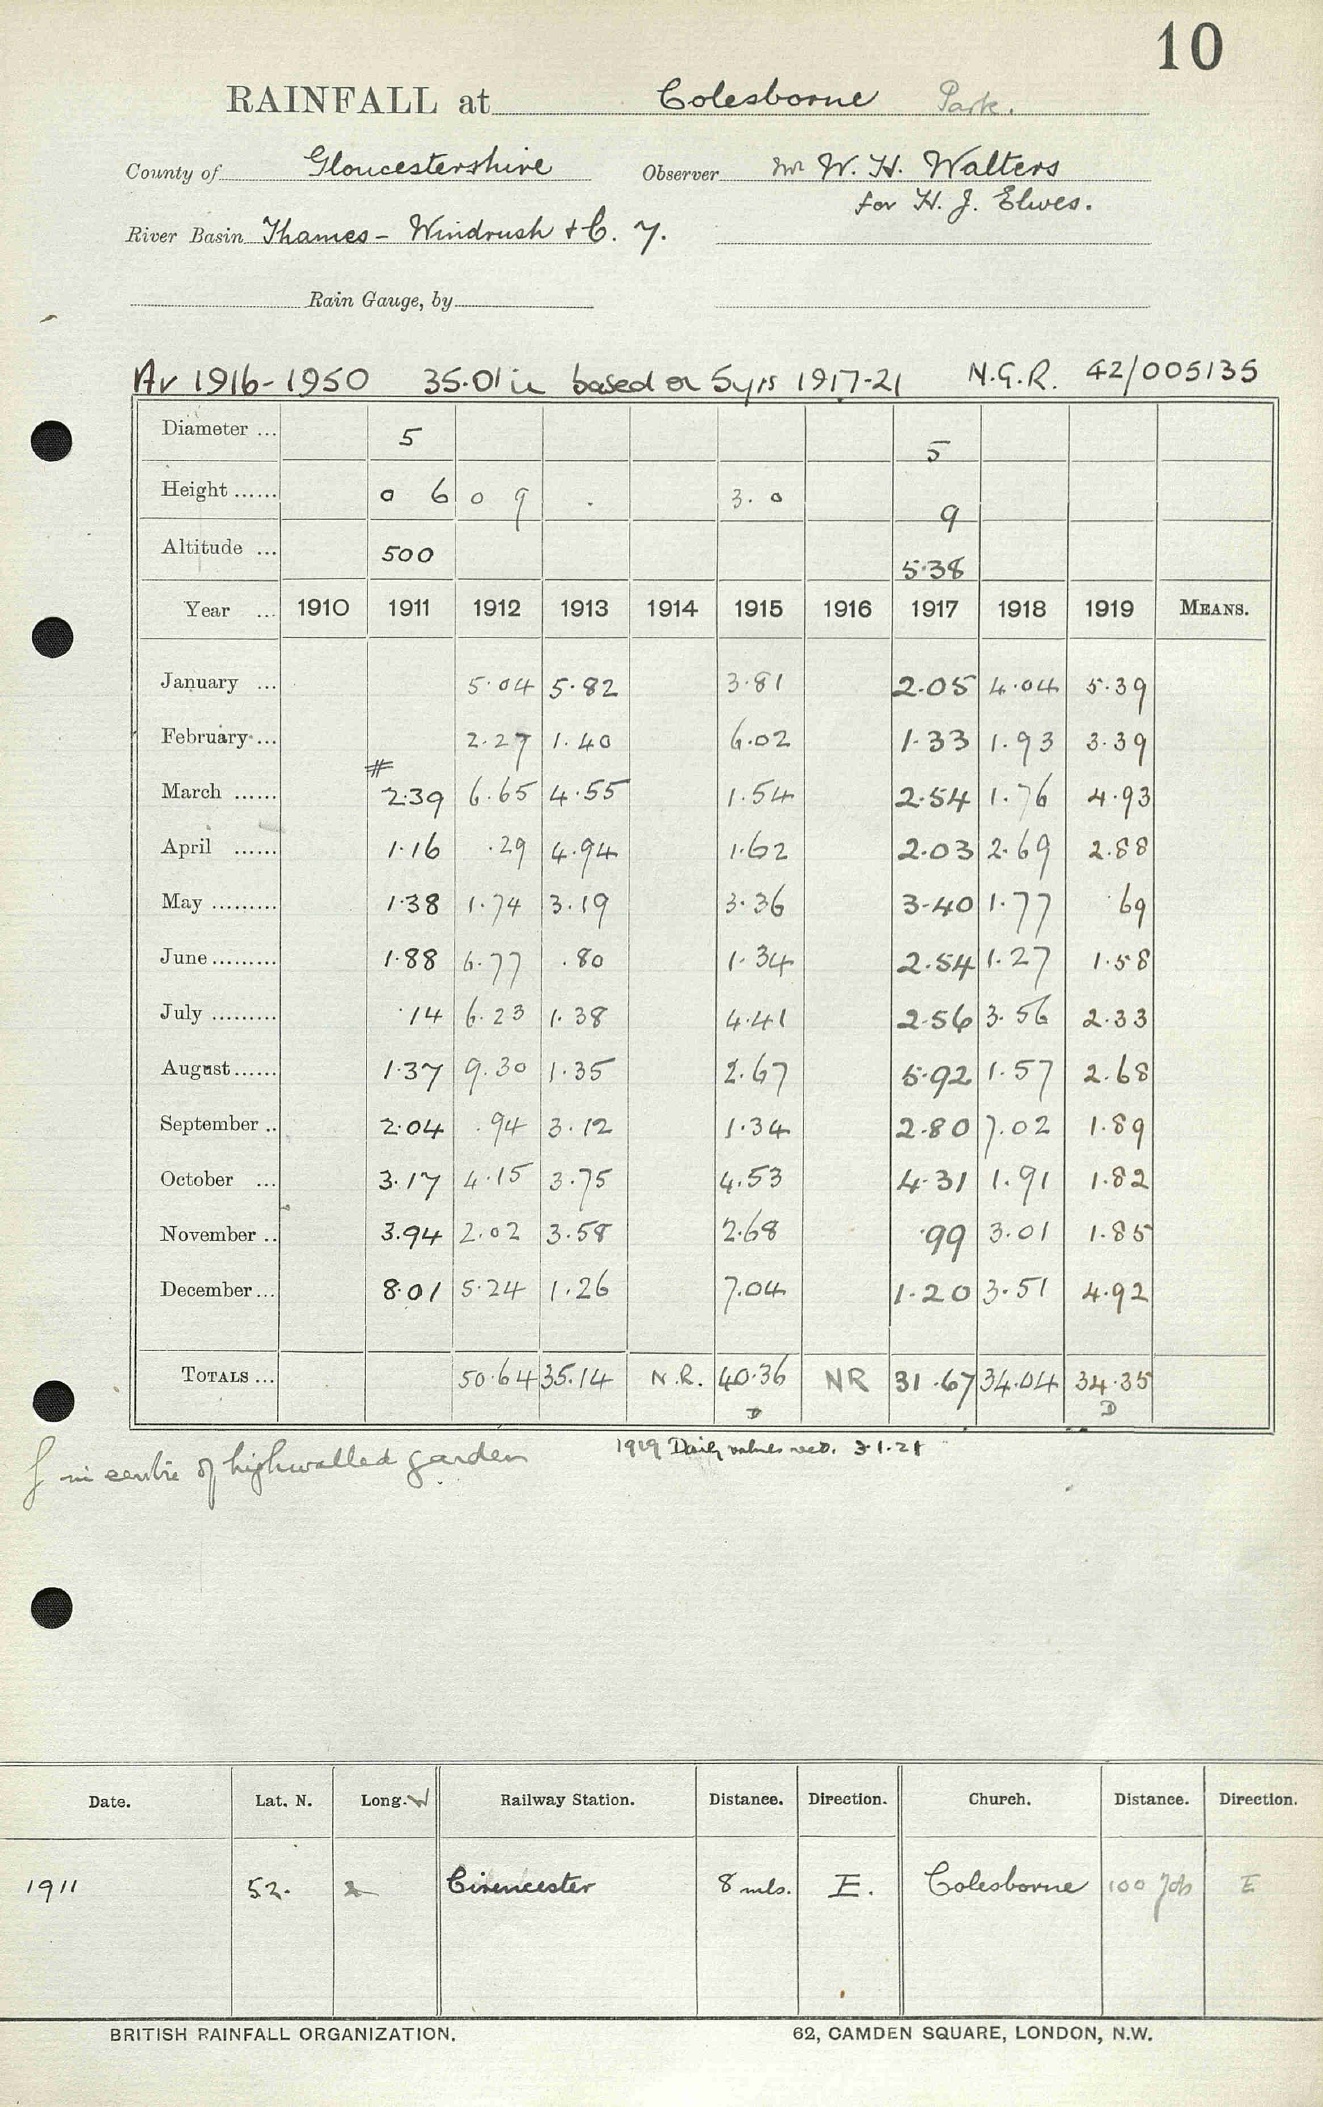 10
RAINFALL at Colesborne Park.
County of Gloucestershire Observer Mr W. H. Walters
for H. J. Elwes.
River Basin Thames - Windrush & C. 7.
Rain Gauge, by
Av 1916-1950 35.01 in based on 5 yrs 1917-21 N.G.R. 42/005135
Diameter ... 5 5
Height ...... 0 6 0 9 3.0 9
Altitude ... 500 538
Year ... 1910 1911 1912 1913 1914 1915 1916 1917 1918 1919 MEANS.
January ... 5.04 5.82 3.81 2.05 4.04 5.39
February ... 2.27 1.40 6.02 1.33 1.93 3.39
#
March ...... 2.39 6.65 4.55 1.54 2.54 1.76 4.93
April ...... 1.16 .29 4.94 1.62 2.03 2.69 2.88
May ......... 1.38 1.74 3.19 3.36 3.40 1.77 .69
June ......... 1.88 6.77 .80 1.34 2.54 1.27 1.58
July ......... .14 6.23 1.38 4.41 2.56 3.56 2.33
August ...... 1.37 9.30 1.35 2.67 5.92 1.57 2.68
September .. 2.04 .94 3.12 1.34 2.80 7.02 1.89
October ... 3.17 4.15 3.75 4.53 4.31 1.91 1.82
November .. 3.94 2.02 3.58 2.68 .99 3.01 1.85
December ... 8.01 5.24 1.26 7.04 1.20 3.51 4.92
TOTALS ... 50.64 35.14 N.R. 40.36 NR 31.67 34.04 34.35
D D
1919 Daily values recd. 3.1.21
in centre of high walled garden
Date. Lat. N. Long. W Railway Station. Distance. Direction. Church. Distance. Direction.
1911 52. 2 Cirencester 8 mls. E. Colesborne 100 yds E
BRITISH RAINFALL ORGANIZATION. 62, CAMDEN SQUARE, LONDON, N.W.